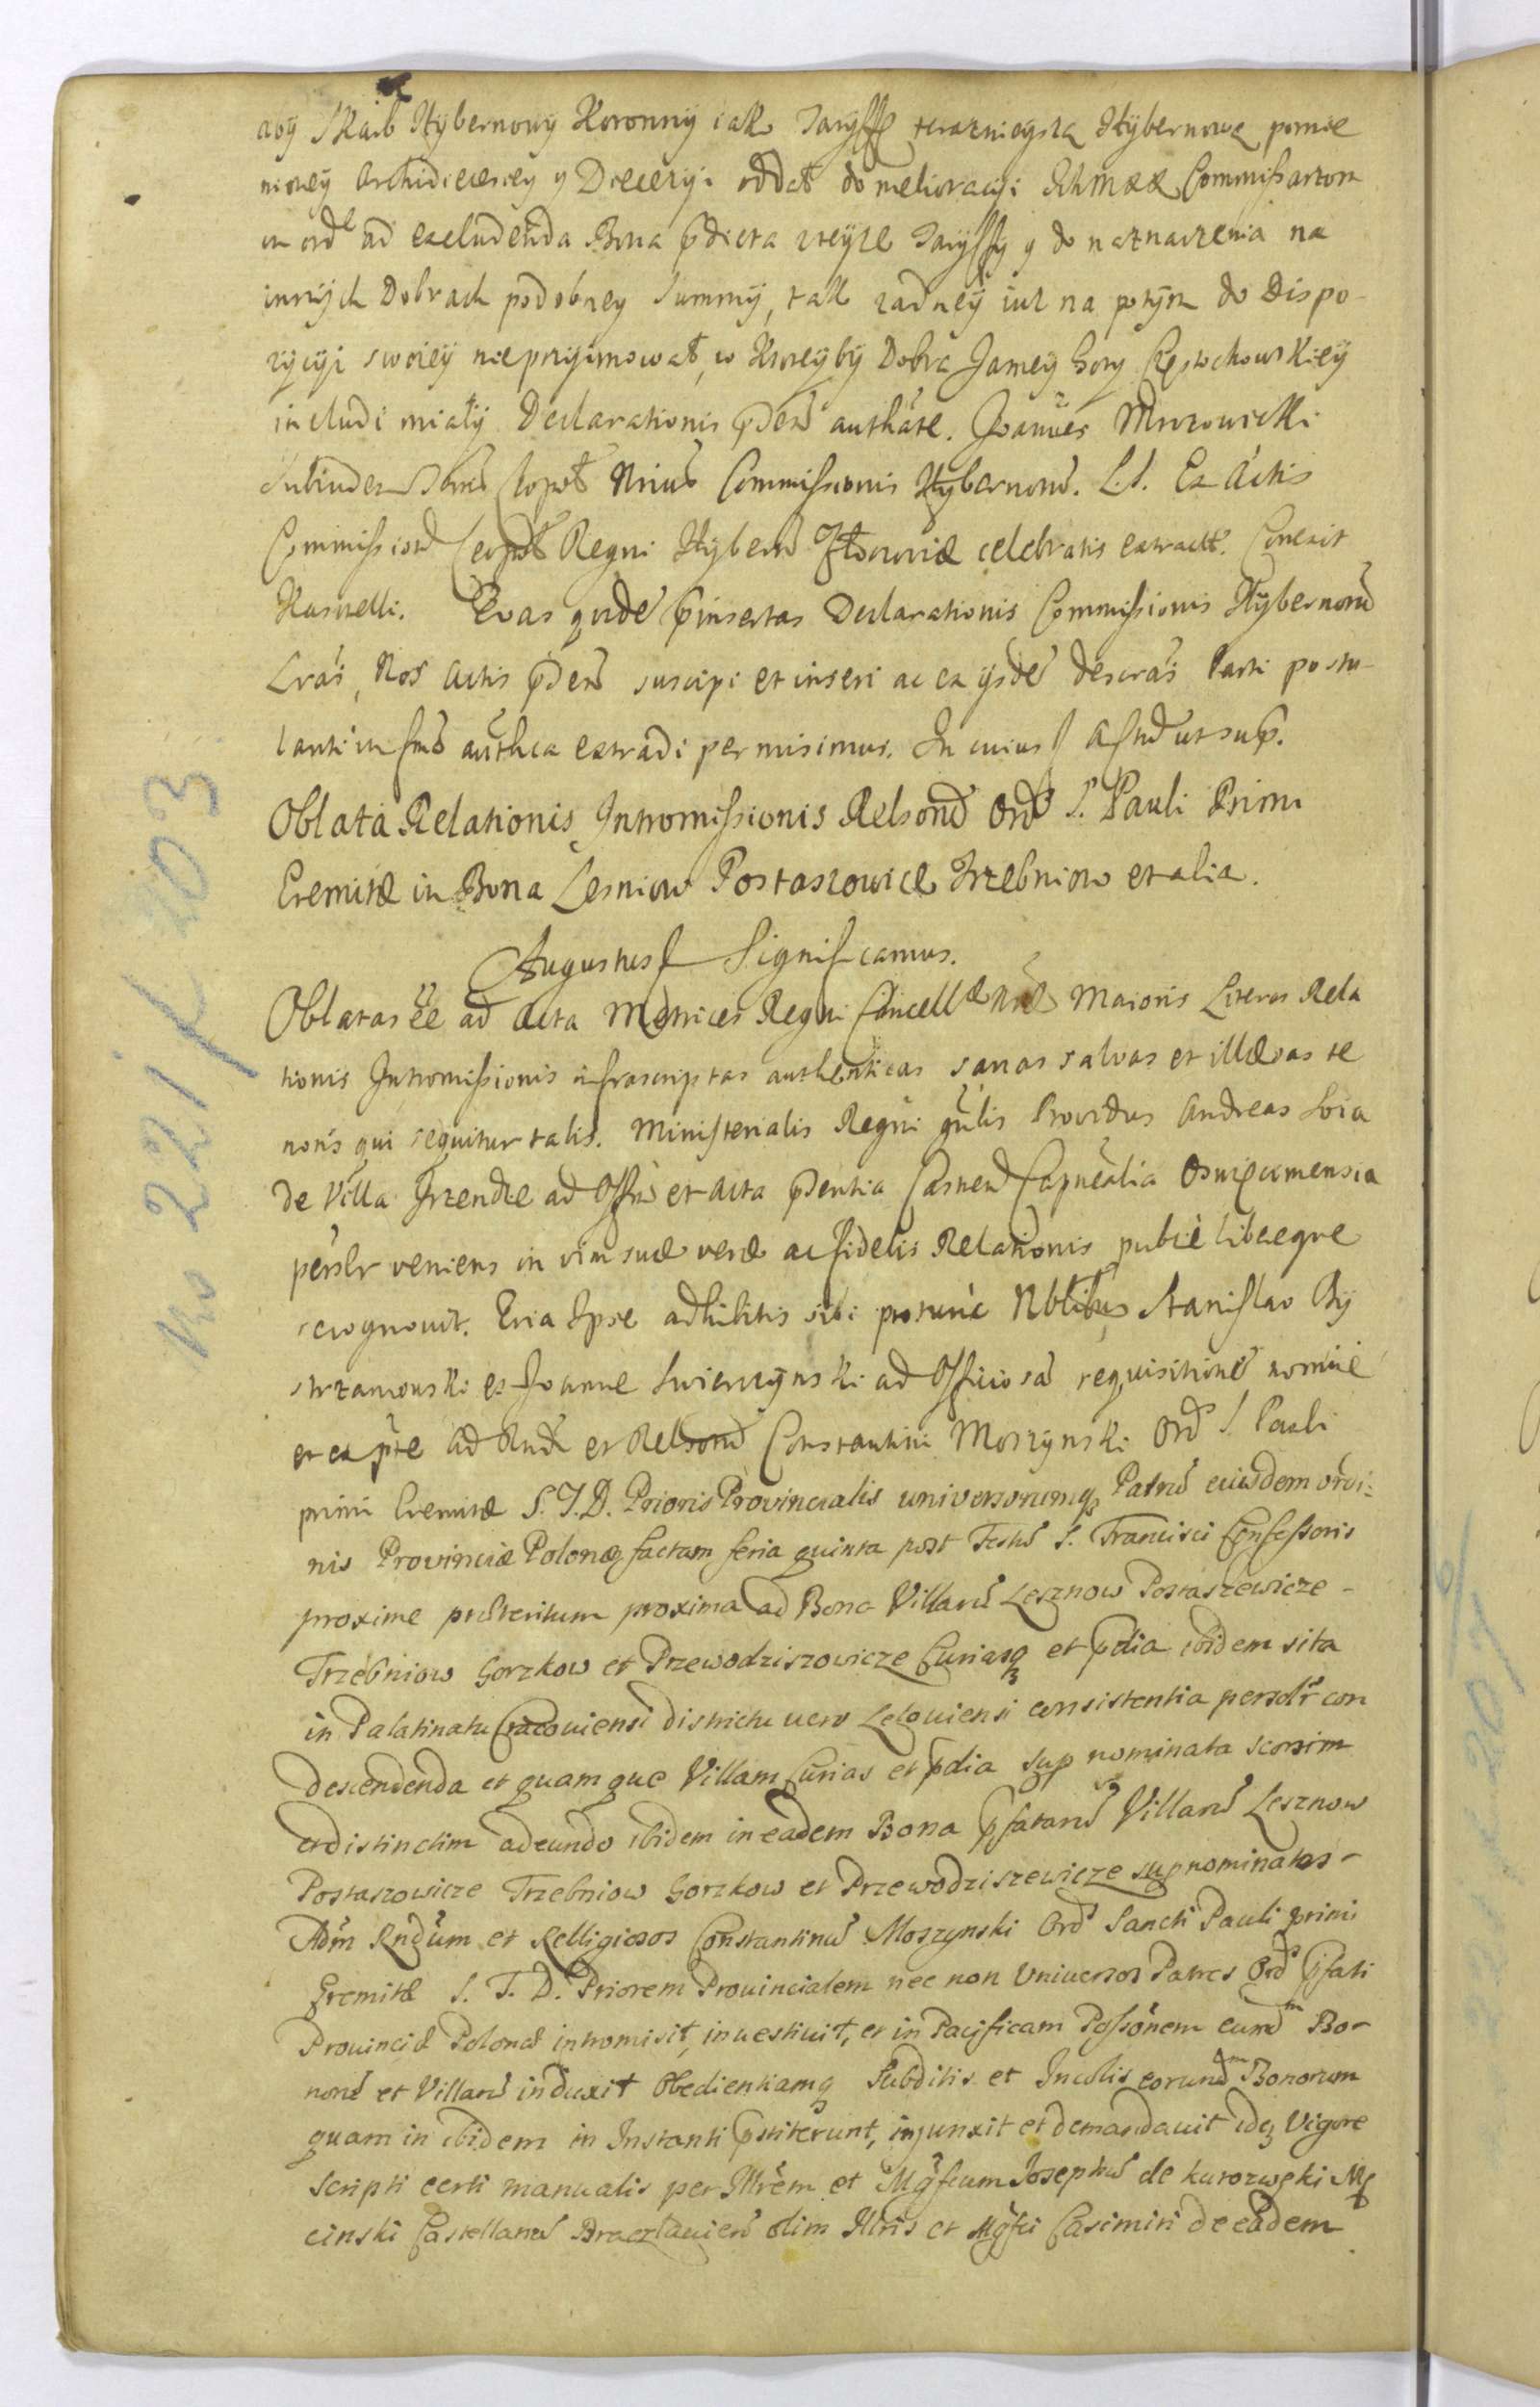 aby Skarb Hybernowy Koronny iako Taryffę teraznieyszą Hybernową pomie
nioney Archidiecesiey y Diecezyi oddał do melioracyi Ichmcc Commissarzom
in ord ad excludenda Bona pdicta zteyze Taryffy y do naznaczenia na
innych Dobrach podobney summy, tak zadney iuz na potym do Dispo-
zycyi swoiey nieprzyimował, w ktoreyby Dobra Jasney Gory Częstochowskiey
includi miały Declarationis pdes authate. Joannes Mrozowicki
Subiudex Commissionis Hybernond. L.S. Ex Actis
Commission Regni Hybern celebratis extractt. Correxit
Karnelli. Evas quide pinsertas Declarationis Commissionis Hybernond
Lras, Nos Actis pdens suscipi et inseri ac ex ysde descras Parti postu-
lanti in authca extradi permisimus. In cuius f Astud ut sup.
Oblata Relationis Intromissionis Relsond Ord S. Pauli Primi
Eremitæ in Bona Lesniow Postaszowice Trzebniow et alia.
Augustus f Significamus.
Oblatas ee ad Acta Metrices Regni Cancell Maioris Literas Rela
tionis Intromissionis infrascriptas authenticas sanas salvas et illæsas te
noris qui sequitur talis. Ministerialis Regni gnlis Providus Andreas Soia
de Villa Irzendze ad Offm et Acta pdentia Castren Capnealia Oswięcimensia
persolr veniens in vim suæ veræ ac fidelis Relationis publce libereque
recognovit. Quia Ipse adhibitis sibi protunc Nblibus Stanislao By
strzanowski et Joanne Swierczynski ad Officiosa requisitione nomine
et ex pte Ad Rndi et Relsond Constantini Moszynski Ord S. Pauli
primi Eremitæ S.T.D. Prioris Provincialis universorumq Patru eiusdem ordi-
nis Provinciæ Polonæ factam feria quinta post Festu S. Francisci Confessoris
proxime præteritum proxima ad Bona Villaru Lesznow Postaszewicze -
Trzebniow Gorzkow et Przewodziszowicze Curiasq et pdia ibidem sita
in Palatinatu Cracoviensi districtu vero Leloviensi consistentia persolr con
descendenda et quamque Villam Curias et pdia sup nominata scorsim
et distinctim adeundo ibidem in eadem Bona pfataru Villaru Lesznow
Postaszowicze Trzebniow Gorzkow et Przewodziszewicze supnominatas -
Adm Rndum et Relligiosos Constantinu Moszynski Ord Sancti Pauli primi
Eremitæ S. T. D. Priorem Provincialem nec non Universos Patres Ord pfati
Provinciæ Polonæ intromisit, investivit, et in Pacificam Possonem eund m Bo-
noru et Villaru induxit Obedientiamq Subditis et Incolis eorund m Bonorum
quam in ibidem in Instanti pstiterunt, injunxit et demandavit idq Vigore
Scripti certi manualis per Illrem et Mgficum Josephu de Kurozwęki Mę
cinski Castellanu Braczlavien olim Illris et Mgfci Casimiri de eadem
No 221 k 203